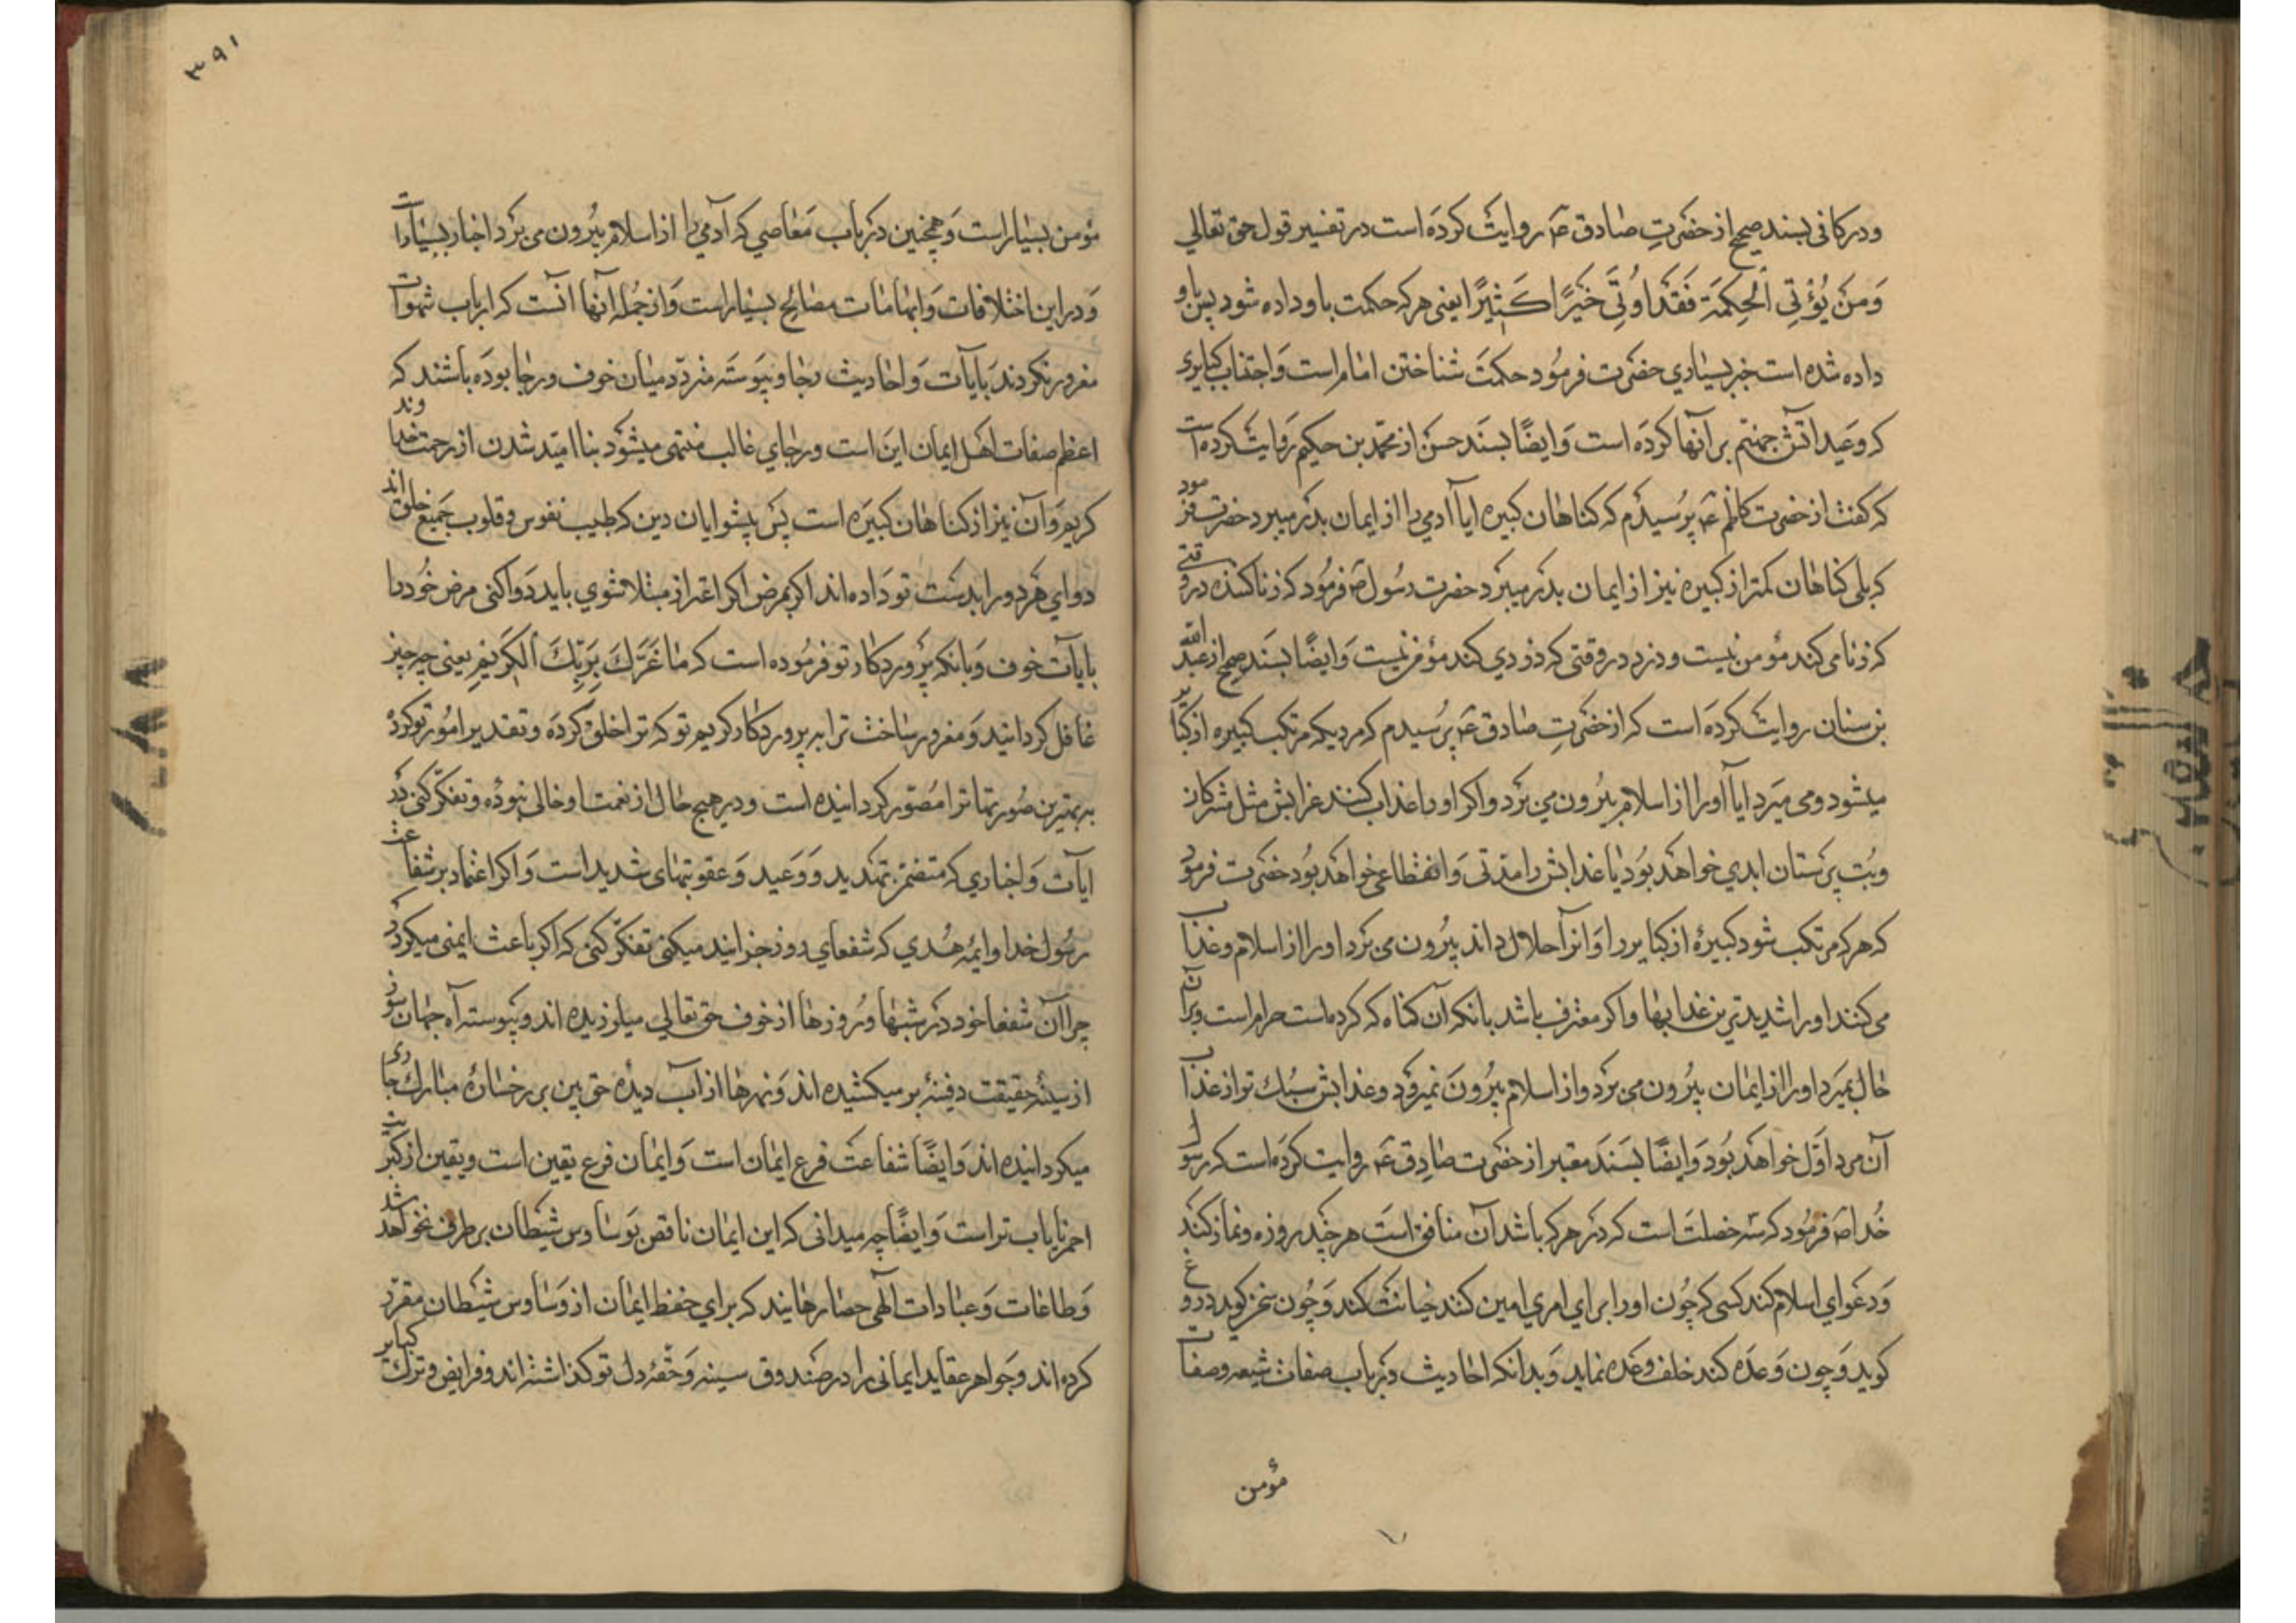 ودر کافی بسند صحیح از حضرتِ صادق ع روایت کرده است در تفسیر قول حق تعالی
وَمَن یُؤتِی الحِکمَة فَقَد اوُتِیَ خَیرًا کَثیرًا یعنی هر که حکمت باو داده شود پس باو
داده شده است خبر بسیاری حضرت فرمود حکمت شناختن امام است وَاجتناب کبایری
که وعید آتش جهنّم بر آنها کرده است وَایضًا بسند حسن از محمّد بن حکیم روایت کرده است
که گفت از حضرت کاظم ع پرُسیدم که کناهان کبیره ایا آدمی را از ایمان بدَر میبرد حضرت فرمود
که بلی کناهان کمتر از کبیره نیز از ایمان بدر میبرد حضرت رسُول ص فرمُود که زنا کننده در وقتی
که زنا می کند مؤمن نیست و دزد در وقتی که دزدی کند مؤمن نیست وَایضًا بسند صحیح از عبد الله
بن سنان روایت کرده است که از حضرتِ صادق ع پرُسیدم که مردیکه مرتکب کبیره از کبایر
میشود و می میرد ایا اورا از اسلام بیرُون می بَرد واکر اورا عذاب کنند عذابش مثل مشرکان
وبُت پرستان ابدی خواهد بُود یا عذابش را مدّتی وَانقطاعی خواهد بُود حضرت فرمود
که هر که مرتکب شود کبیرهٔ از کبایر را وَانرا حلال داند بیرُون می بَرد اورا از اسلام وعذاب
می کنند اورا شدیدترین عذابها واکر معترف باشد بانکه آن کناه که کرده است حرام است وبر آن
حال بمیرد اورا از ایمان بیرُون می بَرد واز اسلام بیرُون نمیرود وعذابش سبُك تر از عذاب
آن مرد اوّل خواهد بُود وَایضًا بسَند معتبر از حضرت صادِق ع روایت کرده است که رسول
خُدا ص فرمُود که سه خصلت است که در هر که باشد آن منافق است هر چند روزه ونماز کند
وَدعوای اسلام کند کسی که چُون اورا برای امری امین کنند خیانت کند وَچُون سخن کوید دروغ
کوید وَچون وَعده کند خلف وعده نماید وَبدانکه احادیث در باب صفات شیعه وصفات
مؤمن
۳۹۱
مؤمن بسیار است وَهمچنین در باب مَعاصی که آدمی را از اسلام بیرُون می برد اخبار بسیار است
وَدر این اختلافات وَابهامات مصالح بسیار است وَاز جُمله آنها آنست که ارباب شهوات
مغرور نکردند بآیات وَاحادیث رجا وپیوَسته متردّد میان خوف ورجا بوده باشند که
اعظم صفات اهل ایمان این است ورجای غالب منتهی میشود بنا امّید شدن از رحمت خداوند
کریم وَآن نیز از کناهان کبیره است پس پیشوایان دین که طبیب نفوس وقلوب جمیع خلق اند
دوای هر دو را بدست تو دَاده اند اکر بمرض اکر اغترار مبتلا شوی باید دَوا کنی مرض خُود را
بآیات خوف وَبانکه پرَوردکار تو فرمُوده است که مٰا غَرّكَ بِرَبِّكَ الکَرِیم یعنی چه چیز
غافل کردانید وَمغرور ساخت ترا به پروردکار کریم تو که ترا خلق کرده وتقدیر امُور تو کرده
بر بهترین صُورتها ترا مُصوّر کردانیده است ودر هیچ حال از نعمت او خالی نبوده وتفکّر کنی در
آیات وَاخباری که متضمّن تهدید وَوَعید وَعقوبتهای شدید است وَاکر اعتماد بر شفاعت
رسُول خدا وایمّه هُدی که شفعای روز جزایند میکنی تفکّر کنی که اکر باعث ایمنی میکردد
چرا آن شفعا خود در شبها ورُوزها از خوف حق تعالی میلرزیده اند وپیوسته آه جهان سوز
از سینهٔ حقیقت دفینه بر میکشیده اند وَنهرها از آب دیدهٔ حق بین بر رخسارهٔ مبارك جاری
میکردانیده اند وَایضًا شفاعت فرع ایمان است وَایمان فرع یقین است ویقین از کبریت
احمر نایاب تر است وَایضًا چه میدانی که این ایمان ناقص بَوساوس شیطان بر طرف نخواهد شد
وَطاعات وَعبادات الٰهی حصارهایند که برای حفظ ایمان از وَساوس شیطان مقرّر
کرده اند وجَواهر عقاید ایمانی را در صندوق سینه وَحقّهٔ دل تو کذاشته اند وفرایض وترك کبایر